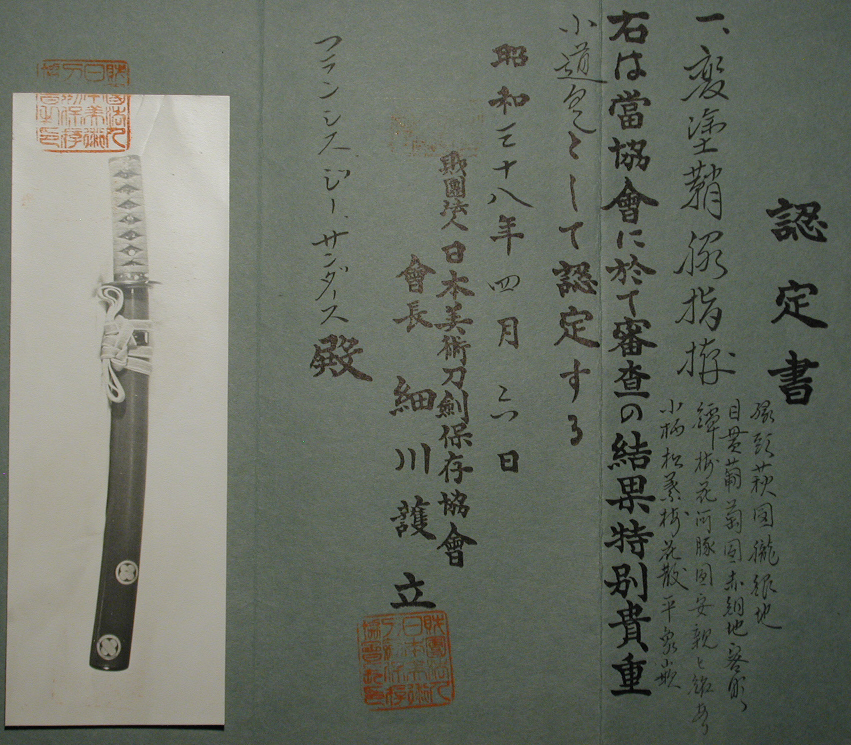 認定書
一、変塗鞘脇指拵
縁頭萩図朧銀地
目貫葡萄図赤銅地容彫
鐔梅花河豚図安親と銘あり
小柄松葉梅花散平象嵌
右は當協會に於て審査の結果特別貴重
小道具として認定する
昭和三十八年四月六日
財團法人日本美術刀劍保存協會
會長 細川護立
フランシス、ジー、サンダース殿